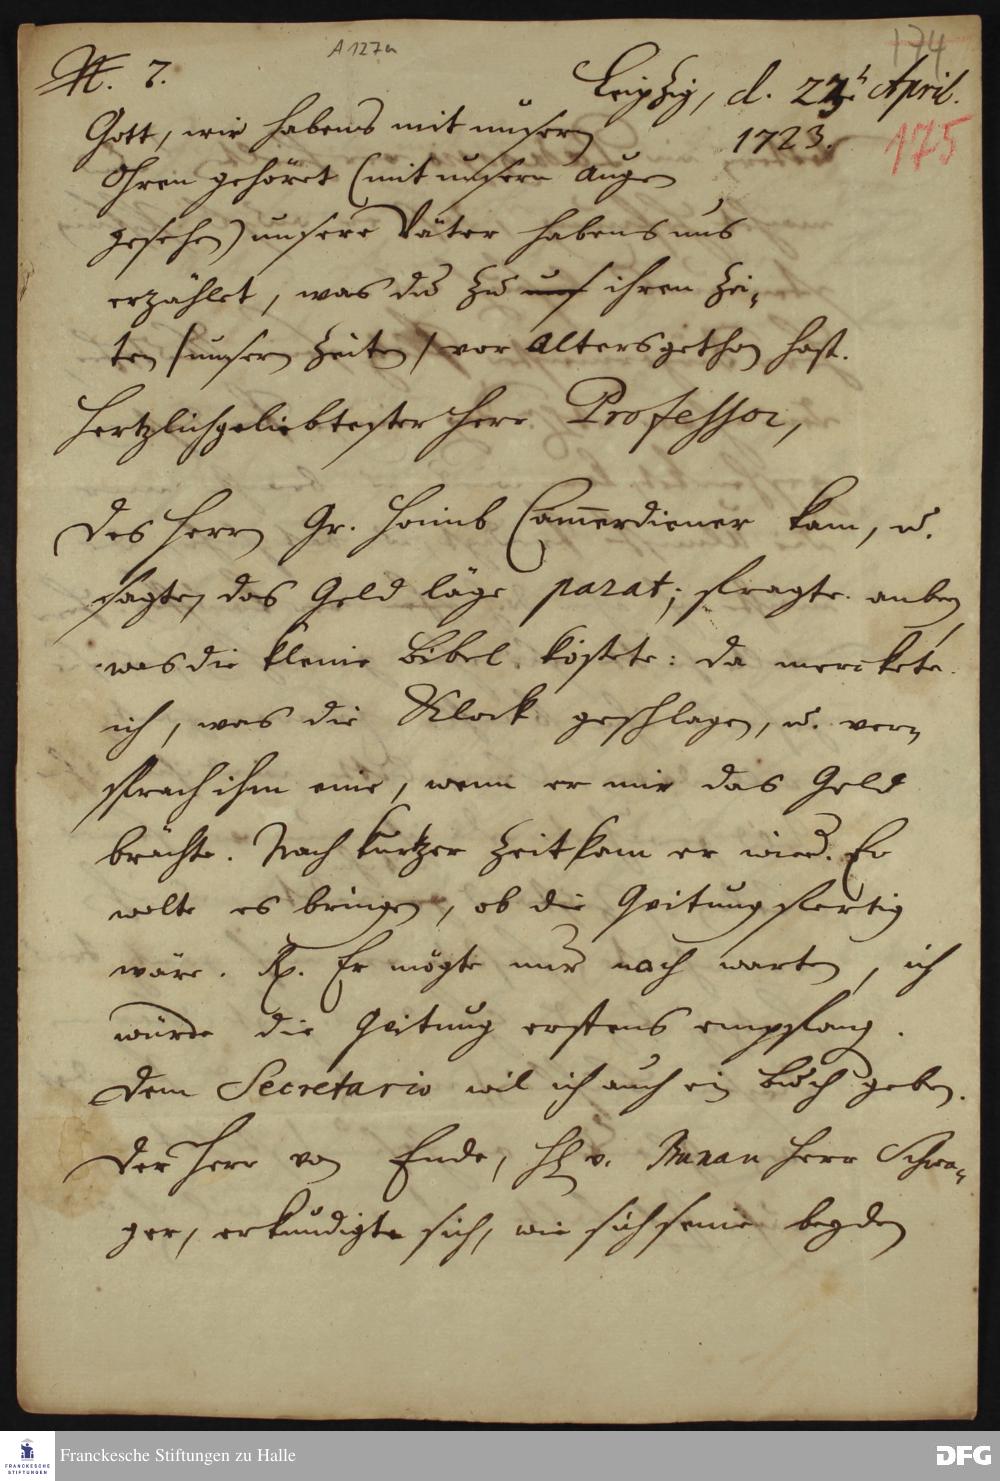 A 127a
174
N. 7.
Leipzig, d. 22t. April.
1723.
175
Gott, wir habens mit unsern
Ohren gehöret (mit unsern Augen
gesehen) unsere Väter habens uns
erzählet, was du zu ihren Zei-
ten /unsern Zeiten/ vor Alters gethan hast.
Hertzlichgeliebtester Herr Professor,
Des Herrn Gr. Hoimb Cammerdiener kam, u.
sagte, das Geld läge parat; fragte anbey
was die kleine Bibel kostete: da merckete
ich, was die Klock geschlagen, u. ver-
sprach ihm eine, wenn er mir das Geld
brächte. Nach kurtzer Zeit kam er wied. Er
wolte es bringen, ob die Qvitung fertig
wäre. Rx. Er mögte nur noch warten, ich
würde die Qvitung erstens empfang.
Dem Secretario wil ich auch ein Buch geben.
Der Herr von Ende, H. v. Bunau Herr Schwa-
ger, erkundigte sich, wie sich seine beyden
FRANCKESCHE STIFTUNGEN
Franckesche Stiftungen zu Halle
DFG